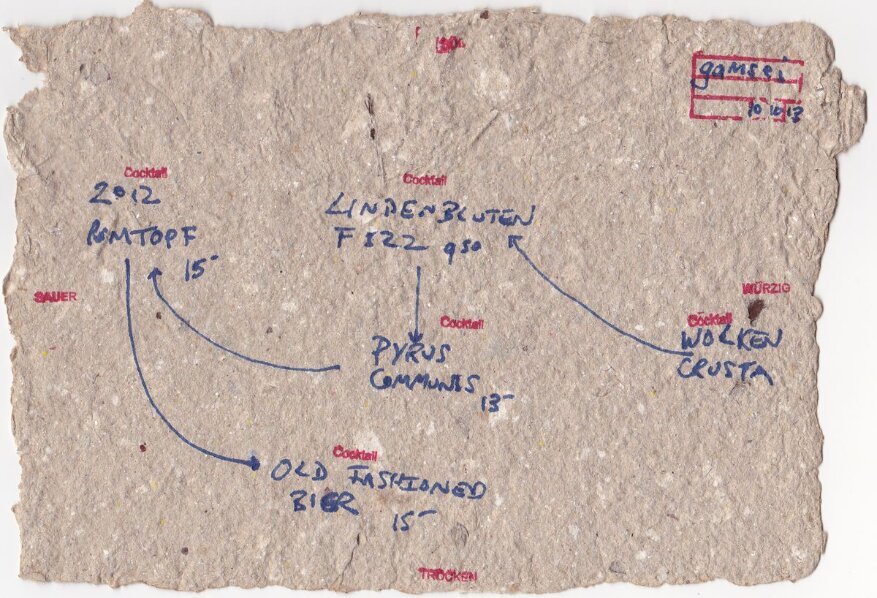 gamsei
10 10 13
Cocktail
2012
RUMTOPF
15-
Cocktail
LINDENBLUTEN
FIZZ 950
SAUER
WÜRZIG
Cocktail
WOLKEN
CRUSTA
Cocktail
PYRUS
COMMUNIS
13-
Cocktail
OLD FASHIONED
BIER
15-
TROCKEN